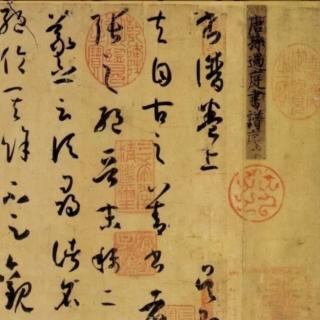 唐孫過庭書譜序
書譜卷上 吳
夫自古之善書者
張之絕晉末稱二
羲之云頃尋諸名
絕倫其餘不足觀
三希堂精鑑璽